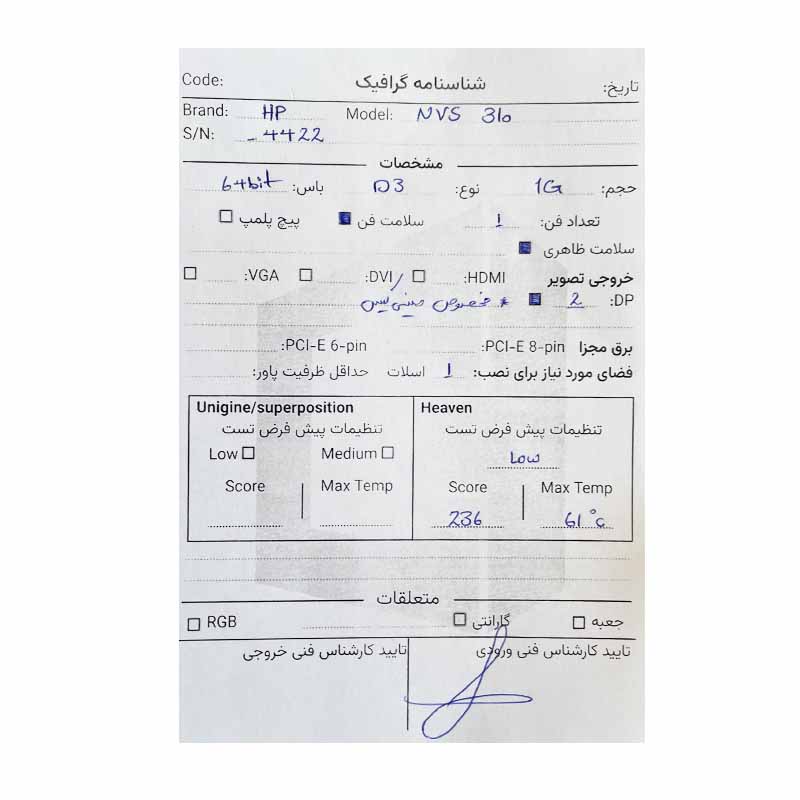 Code: شناسنامه گرافیک تاریخ:
Brand: HP Model: NVS 310
S/N: -4422
مشخصات
حجم: 1G نوع: D3 باس: 64bit
تعداد فن: 1 سلامت فن پیچ پلمپ
سلامت ظاهری
خروجی تصویر HDMI: DVI: VGA:
DP: 2 * مخصوص مینی کیس
برق مجزا PCI-E 8-pin: PCI-E 6-pin:
فضای مورد نیاز برای نصب: 1 اسلات حداقل ظرفیت پاور:
Unigine/superposition Heaven
تنظیمات پیش فرض تست تنظیمات پیش فرض تست
Low Medium Low
Score Max Temp Score Max Temp
236 61°c
متعلقات
جعبه گارانتی RGB
تایید کارشناس فنی ورودی تایید کارشناس فنی خروجی